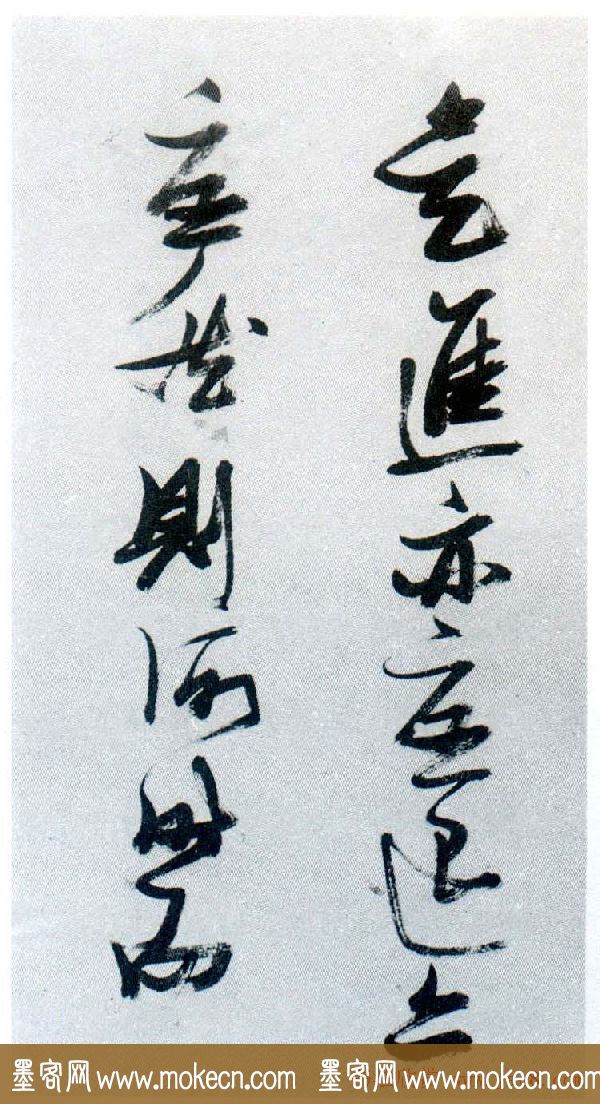 是進亦憂退亦
憂然則何時而
墨客网 www.mokecn.com 墨客网 www.mokecn.com